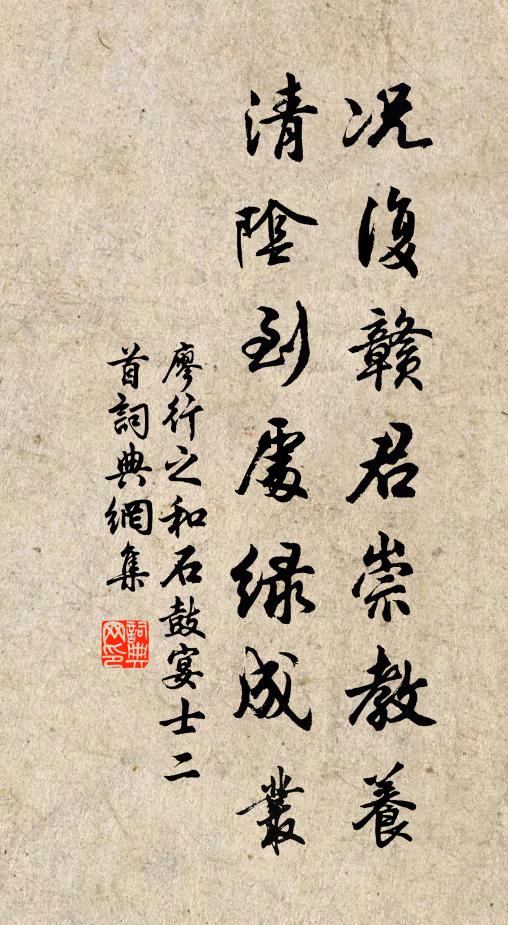 况復贛君崇教養
清陰到處綠成叢
廖行之和石鼓宴士二
首詞典網集
詞典
网印